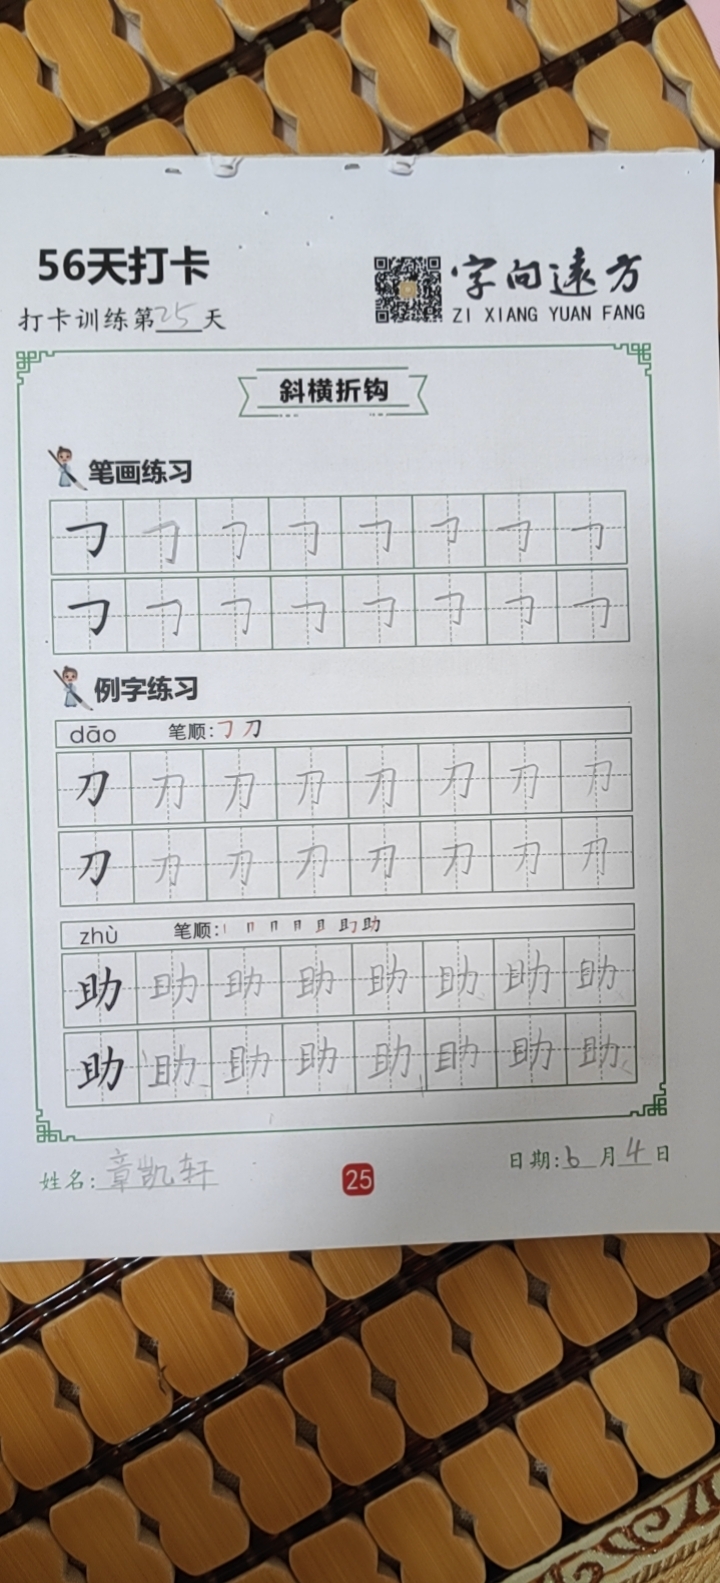 56天打卡
字向遠方
打卡训练第25天
ZI XIANG YUAN FANG
斜横折钩
笔画练习
㇆ ㇆ ㇆ ㇆ ㇆ ㇆ ㇆ ㇆
㇆ ㇆ ㇆ ㇆ ㇆ ㇆ ㇆ ㇆
例字练习
dāo 笔顺:㇆ 刀
刀 刀 刀 刀 刀 刀 刀 刀
刀 刀 刀 刀 刀 刀 刀 刀
zhù 笔顺:丨 冂 月 月 且 助 助
助 助 助 助 助 助 助 助
助 助 助 助 助 助 助 助
姓名:章凯轩
25
日期:6月4日